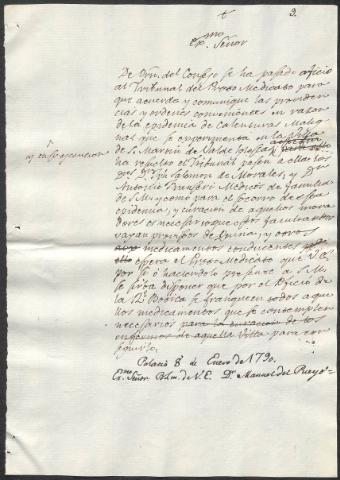 t
9.
Exmo. Señor
De Orn. del Consejo se ha pasado oficio
al Tribunal del Proto Medicato para
que acuerde y comunique las providen
cias, y ordenes convenientes en razon
de la epidemia de Calenturas Malig
nas que se experimenta en la Villa
de S. Martin de Valde Iglesias,
y en su egecucion
ha resuelto el Tribunal pasen a ella los
Dres. Dn. Salomon de Morales, y Dn.
Antonio Franseri Medicos de familia
de S.M. y como para el socorro de esta
epidemia, y curacion de aquellos mora
dores es necesario que los facultativos
vayan provistos de Quina, y otros
medicamentos conducentes
espera el Proto Medicato que V.E.
por si ó haciendolo presente a S.M.
se sirva disponer que por el Oficio de
la Rl. Botica se franqueen todos aque
llos medicamentos que se contemplen
necesarios para la curacion de los
enfermos de aquella Villa para con
seguirlo.
Palacio 8 de Enero de 1790.
Exmo. Señor B.l.m. de V.E. Dn. Manuel del